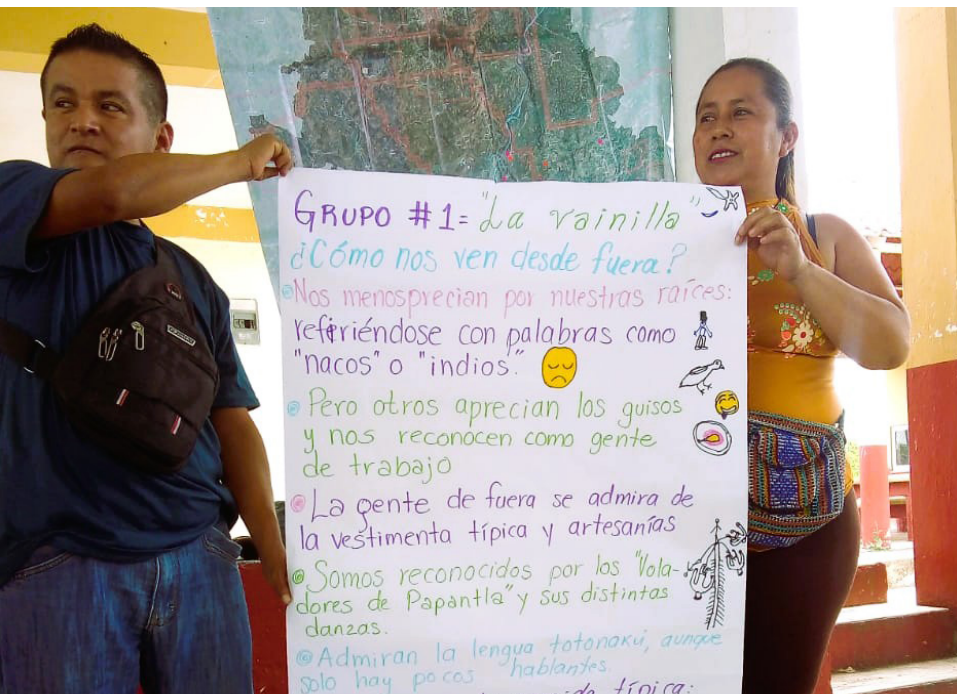 GRUPO #1= "La vainilla"
¿Cómo nos ven desde fuera?
Nos menosprecian por nuestras raíces:
refiriéndose con palabras como
"nacos" o "indios."
Pero otros aprecian los guisos
y nos reconocen como gente
de trabajo
La gente de fuera se admira de
la vestimenta típica y artesanías
Somos reconocidos por los "Vola-
dores de Papantla" y sus distintas
danzas.
Admiran la lengua totonakú, aunque
solo hay pocos hablantes.
típica: